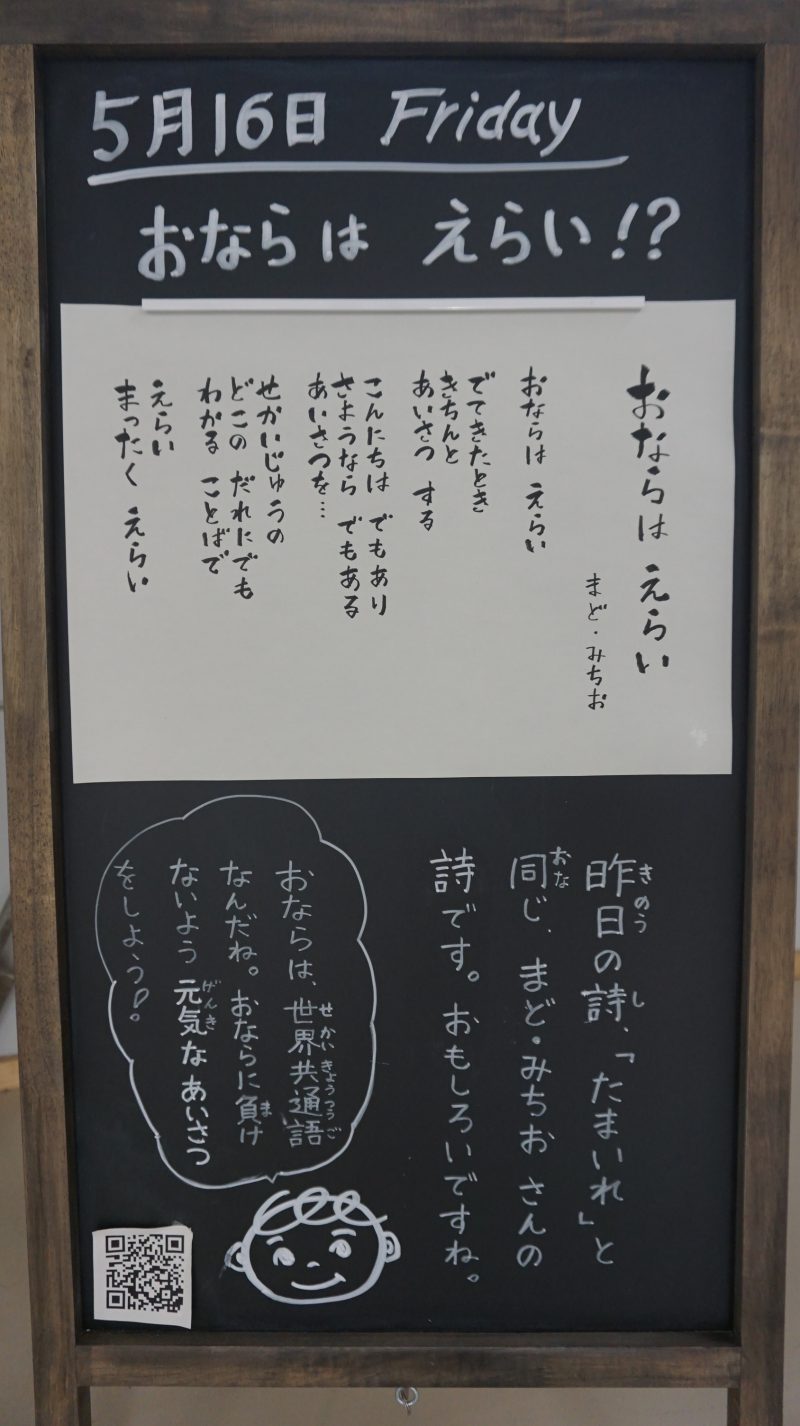 5月16日 Friday
おならは えらい!?
おならは えらい
まど・みちお
おならは えらい
でてきたとき
きちんと
あいさつ する
こんにちは でもあり
さようなら でもある
あいさつを…
せかいじゅうの
どこの だれにでも
わかる ことばで
えらい
まったく えらい
昨日の詩、「たまいれ」と
きのう
し
同じ、まど・みちおさんの
おな
詩です。おもしろいですね。
おならは、世界共通語
せかいきょうつうご
なんだね。おならに負け
ま
ないよう 元気なあいさつ
げんき
をしよう!。